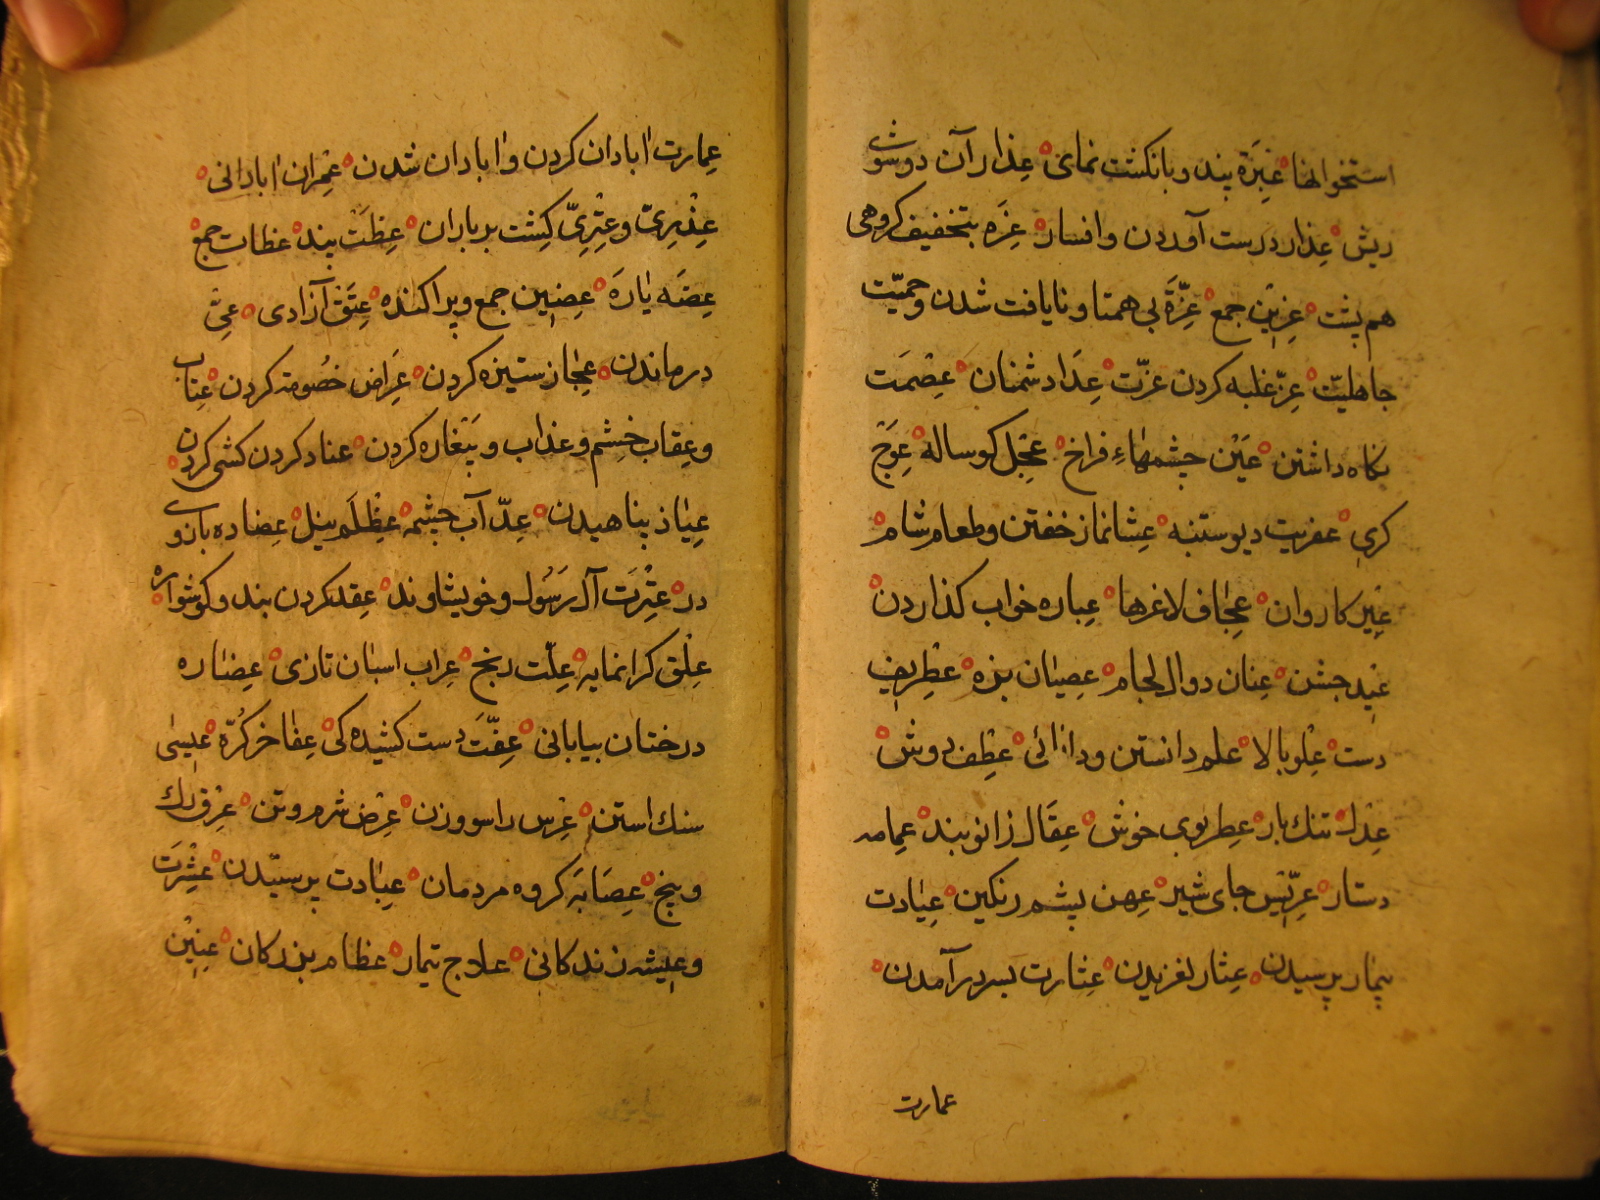 استخوانها عِبَرَة پند و بانکشت نمای عِذار آن دوسوی
ریش عِذار درست آوردن وافسار عِزَه بتخفیف کروهی
هم پشت عِزین جمع عِزَّة بی همتا و نایافت شدن وحمیّت
جاهلیّت عِزّ غلبه کردن عزّت عِدَا دشمنان عِصْمَت
نکاه داشتن عَیْن چشمهاءِ فراخ عِجْل کوساله عِوَج
کری عفریت دیو ستنبه عِشا نماز خفتن وطعام شام
عِیر کاروان عِجَاف لاغرها عِباره خواب کذاردن
عِید جشن عِنان دوال لجام عِصیان بزه عِطریف
دست عِلو بالا علم دانستن ودانائی عِطف دوش
عِدل تنك بار عِطر بوی خوش عِقَال زانوبند عِمامه
دستار عِرّیس جای شیر عِهن پشم رنکین عِیَادت
بیمار پرسیدن عِثار لغزیدن عِثارت بسر درآمدن
عمارت
عِمارت اٰبادان کردن واٰبادان شدن عِمْران اٰبادانی
عِذْیِریّ وعِثْرِیّ کِشت بر باران عِظَتْ پند عظات جمع
عِضَه پاٰرَه عِضِین جمع وپراکنده عِتَق آزادی عِیّ
درماندن عِجَاز ستیزه کردن عِرَاض خصُومة کردن عِتاب
وعِقاب خِشم وعذاب و پَیْغاره کردن عناد کردن کشی کردن
عِیَاذ پناهیدن عِدّ آب چشمه عِظْلَم نیل عِضاده بازوی
در عِتْرت آل رَسُول وخویشاوند عِقد کردن بند وکوشواره
عِلْق کرانمایه عِلّت رنج عِراب اسبان تازی عِضاره
درختان بیابانی عِفّت دست کشیده کی عِفا خر کُرّه عیسٰی
سنك استن عِرْس راسو وزن عِرْض شرم وتن عِرْق رك
وبیخ عِصَابَه کروه مردمان عِبَادت پرستیدن عِشْرَت
وعِیشه زندکانی علاج تیمار عظام بزرکان عِنِین